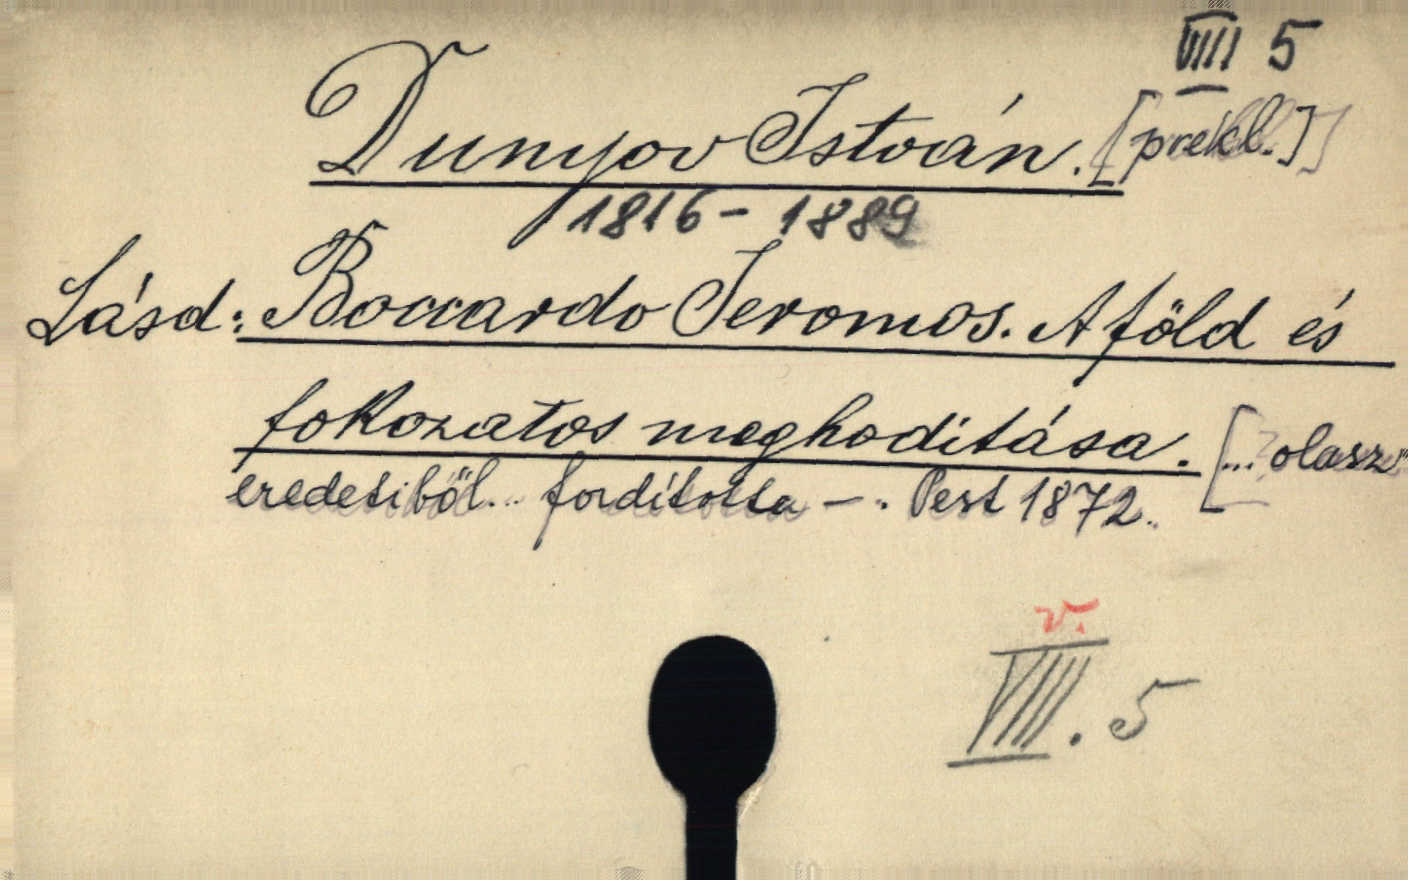 VIII 5
Dunyov István. [prekl.]
1816 - 1889
Lásd: Boccardo Jeromos. A föld és
fokozatos meghoditása. [... olasz
eredetiből... fordította - . Pest 1872.
v.
VIII. 5